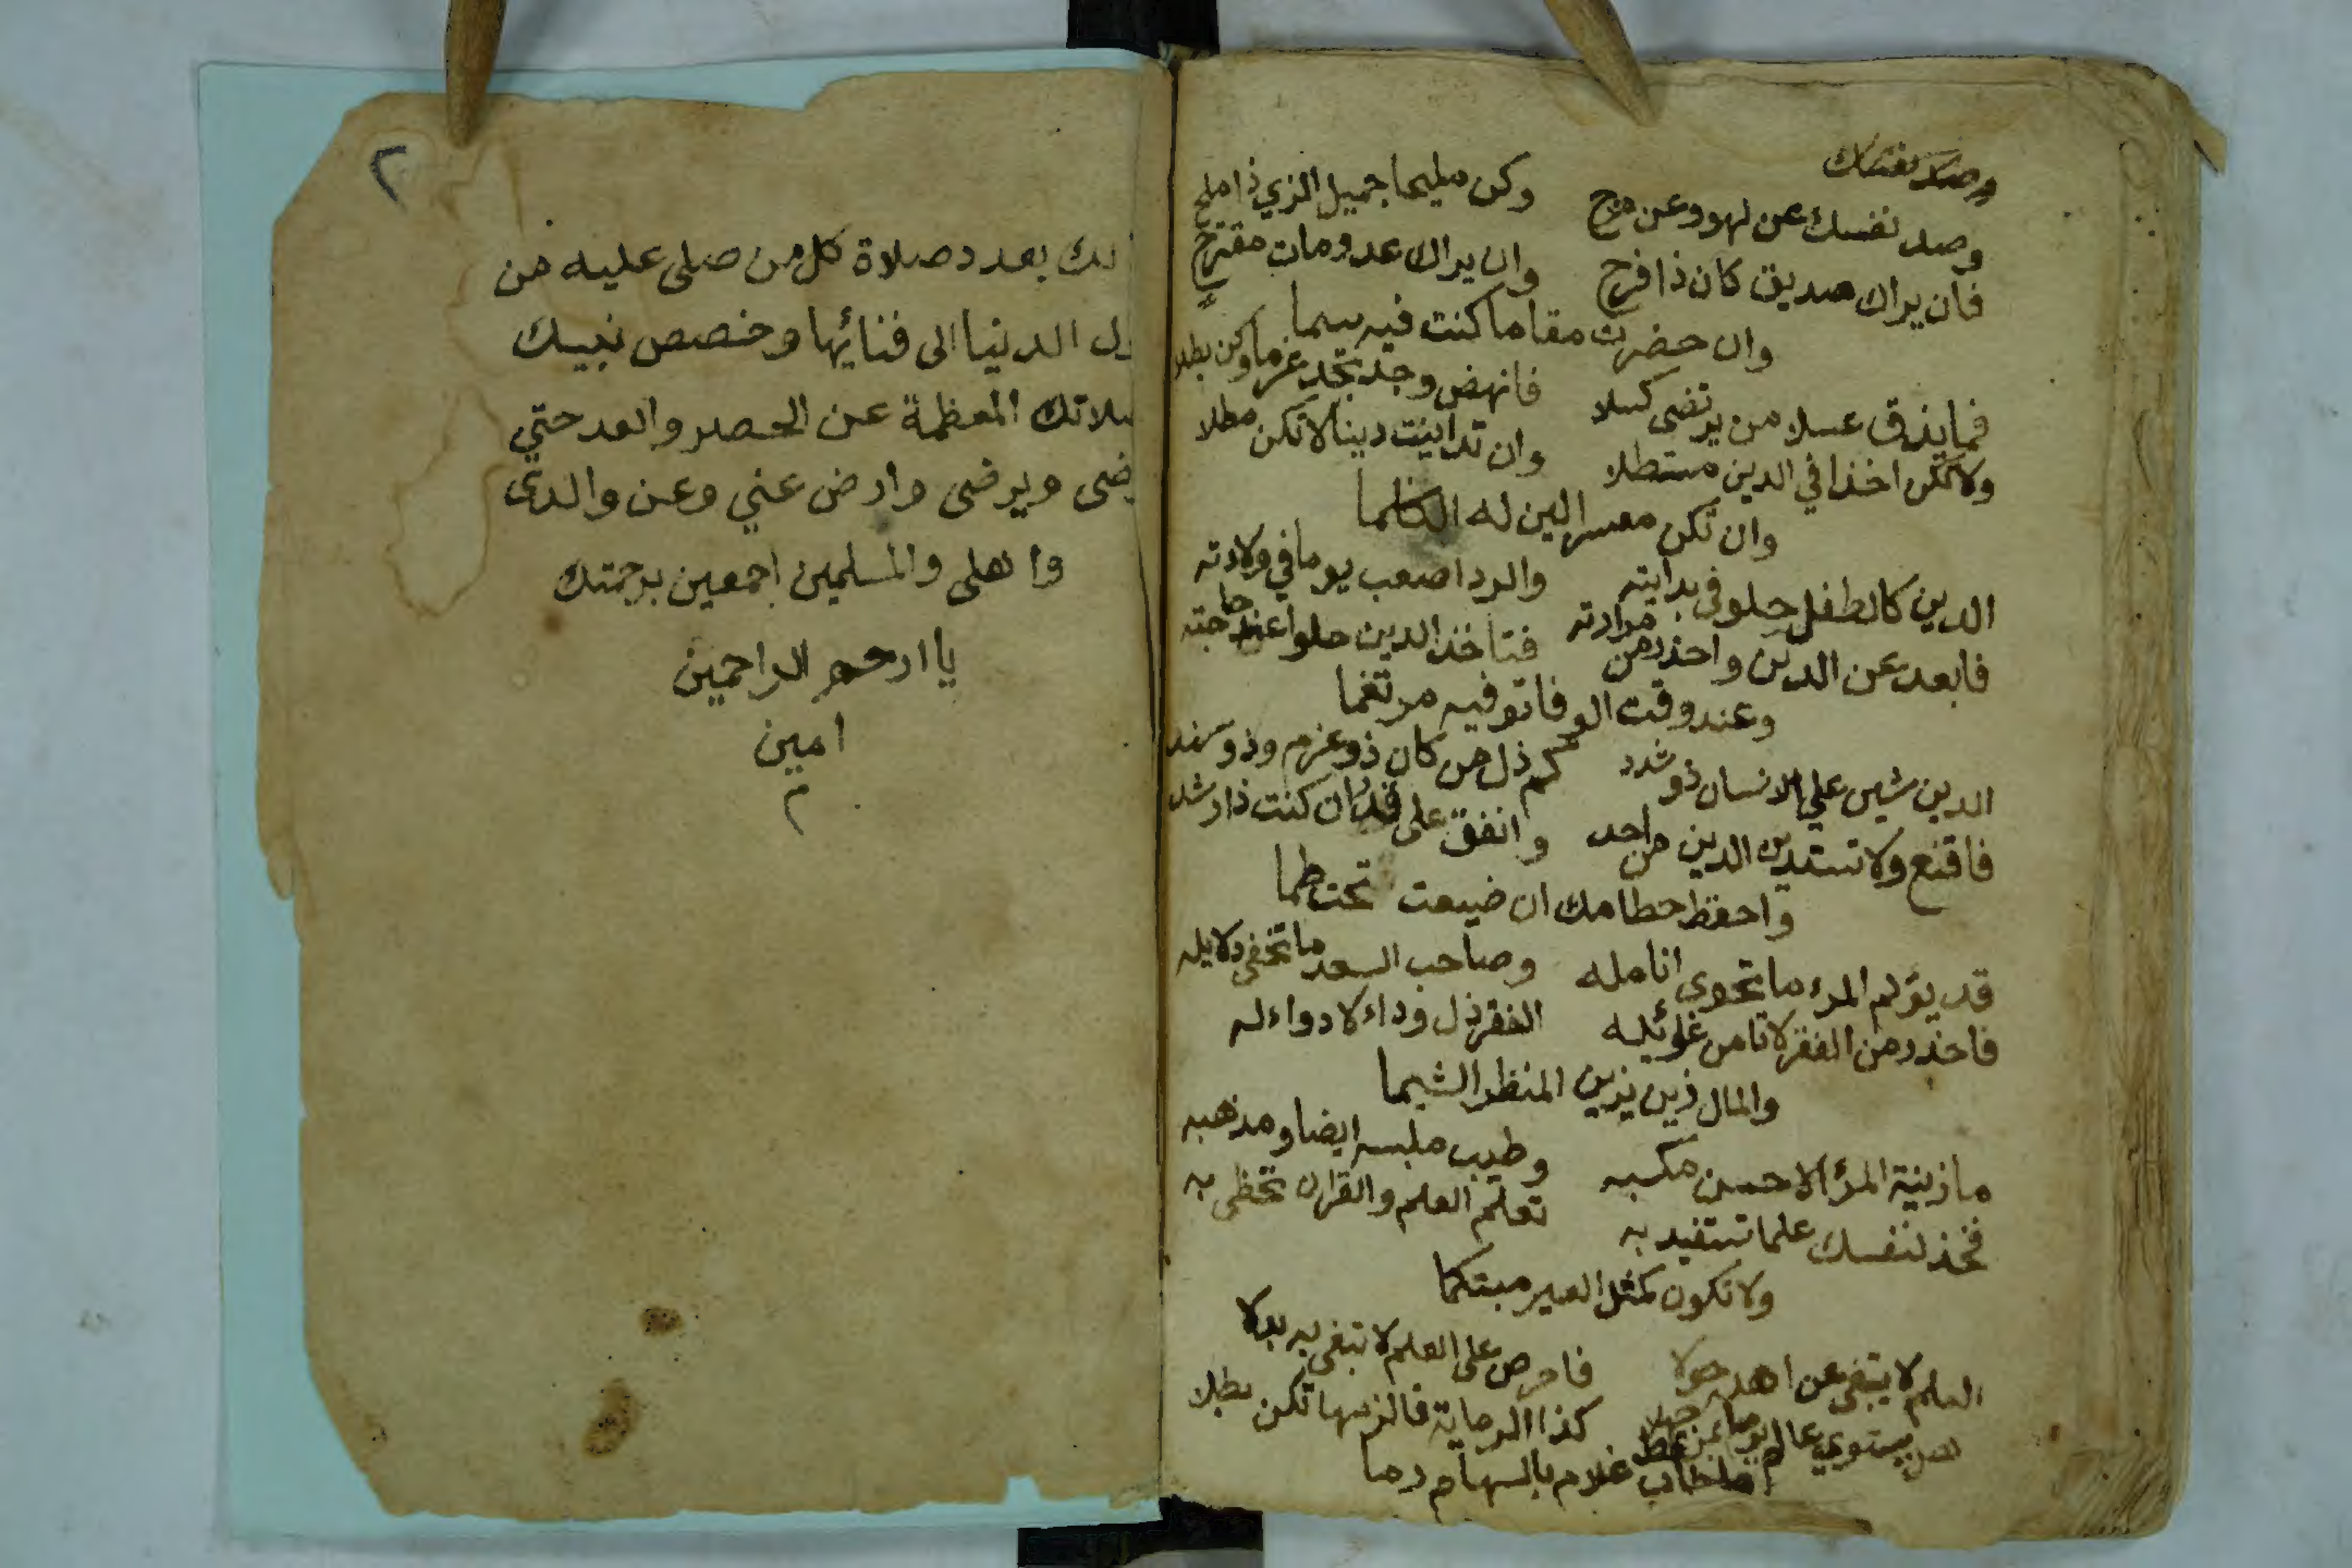 وصد نفسك
وصد نفسك عن لهو وعن مزح وكن مليحا جميل الزي ذا ملح
فان يراك صديق كان ذا فرح وان يراك عدو مات مقترح
وان حضرت مقاما كنت فيه سما
فما يذق عسلا من يرتضى كسلا فانهض وجد تجد عزما وكن بطلا
ولا تكن اخذا في الدين مستطلا وان تداينت دينا لا تكن مطلا
وان تكن معسرا لين له الكلما
الدين كالطفل حلو في بدايته والرد اصعب يوما في ولادته
فابعد عن الدين واحذر من مرادته فتاخذ الدين حلوا عند حاجته
وعند وقت الوفا توفيه مرتغما
الدين شين على الانسان ذو شدد كم ذل من كان ذو عزم وذو سند
فاقنع ولا تستدين الدين من احد وانفق على قدر ان كنت ذا رشد
واحفظ حطامك ان ضيعت تحتطما
قد يؤلم المرء ما تحوى انامله وصاحب السعد ما تخفى دلايله
فاحذر من الفقر لا تامن غوائيله الفقر ذل وداء لا دواء له
والمال زين يزين المنظر الشيما
ما زينة المرء الا حسن مكسبه وطيب ملبسه ايضا ومذهبه
فخذ لنفسك علما تستفيد به تعلم العلم والقران تحظى به
ولا تكون كمثل العير مبتكما
العلم لا يبتغى عن اهله حولا فاحرص على العلم لا تبغى به بدلا
هل يستوي عالم يوما بمن جهلا كذا الرماية فالزمها تكن بطلا
ما خاب غلام بالسهام رما
٢
لك بعدد صلاة كل من صلى عليه من
ول الدنيا الى فنائها وخصص نبيك
صلاتك المعظمة عن الحصر والعد حتي
رضى ويرضى وارض عني وعن والدى
واهلى والمسلمين اجمعين برحمتك
يا ارحم الراحمين
امين
م